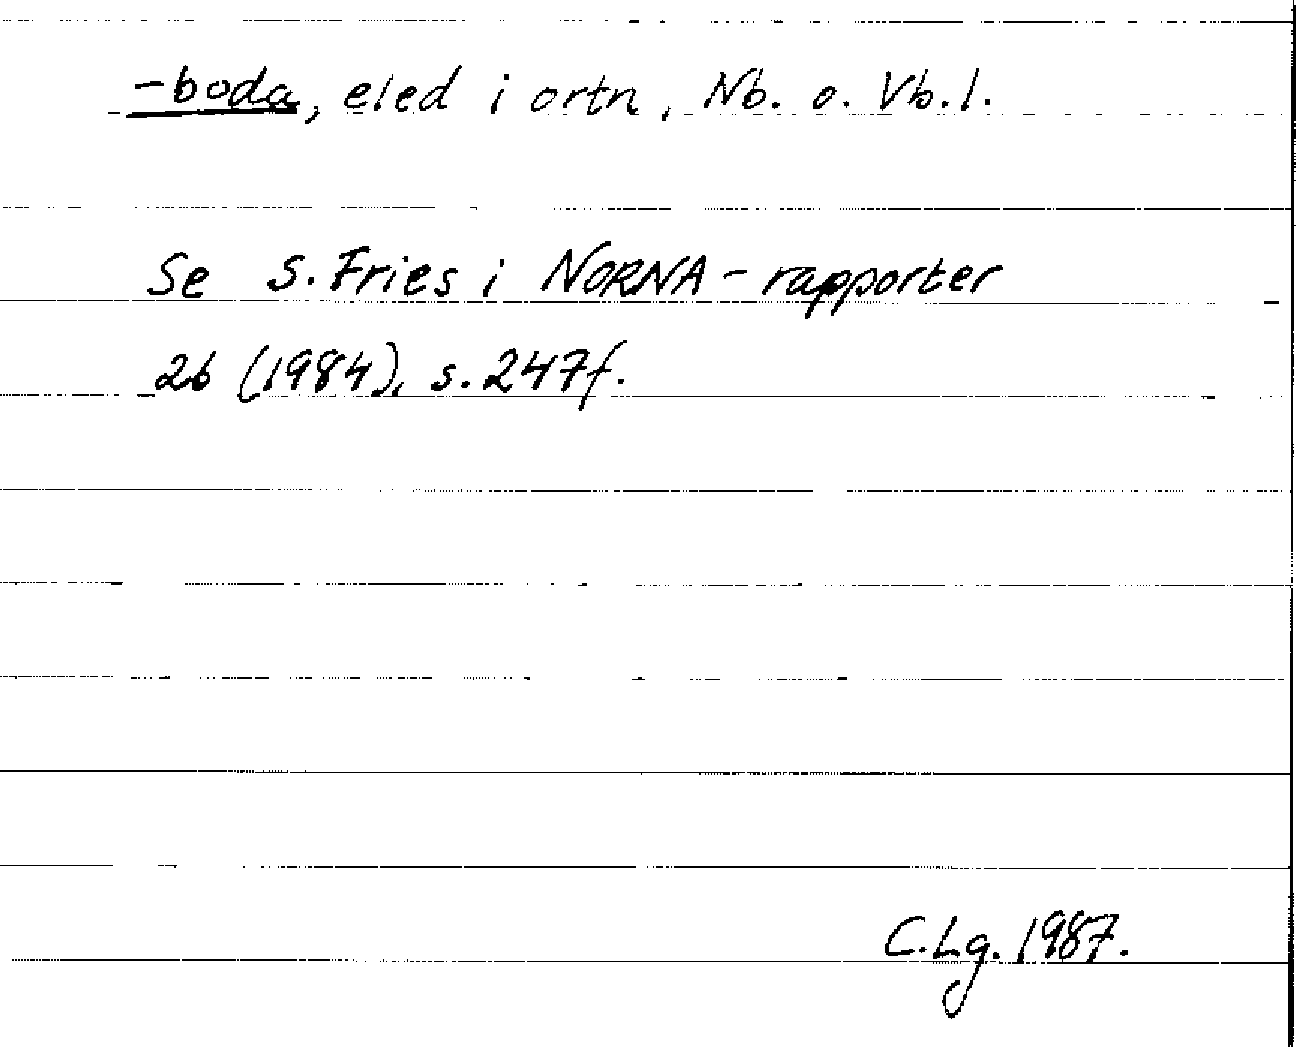 -boda, eled i ortn, Nb. o. Vb.l.
Se S. Fries i NORNA-rapporter
26 (1984), s. 247f.
C.Lg. 1987.